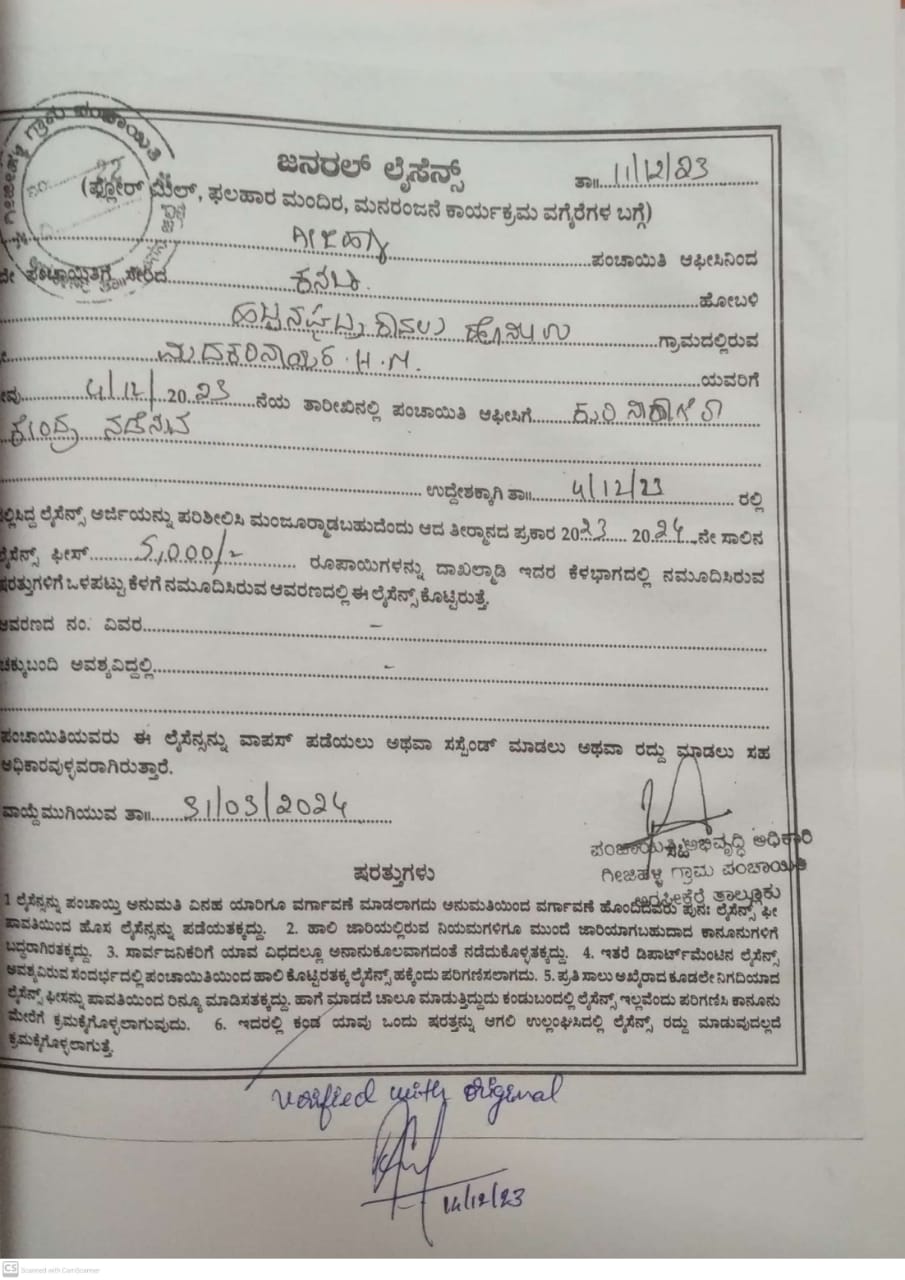 ಗೀಜಿಹಳ್ಳಿ ಗ್ರಾಮ ಪಂಚಾಯಿತಿ
ಜನರಲ್ ಲೈಸೆನ್ಸ್
ತಾ॥ 11/12/23
(ಫ್ಲೋರ್ ಮಿಲ್, ಫಲಹಾರ ಮಂದಿರ, ಮನರಂಜನೆ ಕಾರ್ಯಕ್ರಮ ವಗೈರೆಗಳ ಬಗ್ಗೆ)
ಪಂಚಾಯಿತಿ ಆಫೀಸಿನಿಂದ
ಈ ಪಂಚಾಯ್ತಿಗೆ ಸೇರಿದ ಕಸಬಾ ಹೋಬಳಿ
ಗ್ರಾಮದಲ್ಲಿರುವ
ಮದಕರಿನಾಯಕ . H . M . ಯವರಿಗೆ
4/12/2023 ನೆಯ ತಾರೀಖಿನಲ್ಲಿ ಪಂಚಾಯಿತಿ ಆಫೀಸಿಗೆ ಕುರಿ ಸಾಕಾಣಿಕೆ
ಕೇಂದ್ರ ನಡೆಸುವ
ಉದ್ದೇಶಕ್ಕಾಗಿ ತಾ॥ 4/12/23 ರಲ್ಲಿ
ಸಲ್ಲಿಸಿದ್ದ ಲೈಸೆನ್ಸ್ ಅರ್ಜಿಯನ್ನು ಪರಿಶೀಲಿಸಿ ಮಂಜೂರ್‍ಮಾಡಬಹುದೆಂದು ಆದ ತೀರ್‍ಮಾನದ ಪ್ರಕಾರ 2023 2024 ನೇ ಸಾಲಿನ
ಲೈಸೆನ್ಸ್ ಫೀಸ್ 5,000/- ರೂಪಾಯಿಗಳನ್ನು ದಾಖಲ್ಮಾಡಿ ಇದರ ಕೆಳಭಾಗದಲ್ಲಿ ನಮೂದಿಸಿರುವ
ಷರತ್ತುಗಳಿಗೆ ಒಳಪಟ್ಟು ಕೆಳಗೆ ನಮೂದಿಸಿರುವ ಆವರಣದಲ್ಲಿ ಈ ಲೈಸೆನ್ಸ್ ಕೊಟ್ಟಿರುತ್ತೆ.
ಆವರಣದ ನಂ. ವಿವರ -
ಚಕ್ಕುಬಂದಿ ಅವಶ್ಯವಿದ್ದಲ್ಲಿ -
ಪಂಚಾಯಿತಿಯವರು ಈ ಲೈಸೆನ್ಸನ್ನು ವಾಪಸ್ ಪಡೆಯಲು ಅಥವಾ ಸಸ್ಪೆಂಡ್ ಮಾಡಲು ಅಥವಾ ರದ್ದು ಮಾಡಲು ಸಹ
ಅಧಿಕಾರವುಳ್ಳವರಾಗಿರುತ್ತಾರೆ.
ವಾಯ್ದೆಮುಗಿಯುವ ತಾ॥ 31/03/2024
ಪಂಚಾಯತಿ ಅಭಿವೃದ್ಧಿ ಅಧಿಕಾರಿ
ಗೀಜಿಹಳ್ಳಿ ಗ್ರಾಮ ಪಂಚಾಯಿತಿ
ಅರಸೀಕೆರೆ ತಾಲ್ಲೂಕು
ಷರತ್ತುಗಳು
1 ಲೈಸೆನ್ಸನ್ನು ಪಂಚಾಯ್ತಿ ಅನುಮತಿ ವಿನಹ ಯಾರಿಗೂ ವರ್ಗಾವಣೆ ಮಾಡಲಾಗದು ಅನುಮತಿಯಿಂದ ವರ್ಗಾವಣೆ ಹೊಂದಿದವರು ಪುನಃ ಲೈಸೆನ್ಸ್ ಫೀ
ಪಾವತಿಯಿಂದ ಹೊಸ ಲೈಸೆನ್ಸನ್ನು ಪಡೆಯತಕ್ಕದ್ದು. 2. ಹಾಲಿ ಜಾರಿಯಲ್ಲಿರುವ ನಿಯಮಗಳಿಗೂ ಮುಂದೆ ಜಾರಿಯಾಗಬಹುದಾದ ಕಾನೂನುಗಳಿಗೆ
ಬದ್ಧರಾಗಿರತಕ್ಕದ್ದು. 3. ಸಾರ್ವಜನಿಕರಿಗೆ ಯಾವ ವಿಧದಲ್ಲೂ ಅನಾನುಕೂಲವಾಗದಂತೆ ನಡೆದುಕೊಳ್ಳತಕ್ಕದ್ದು. 4. ಇತರೆ ಡಿಪಾರ್ಟ್‌ಮೆಂಟಿನ ಲೈಸೆನ್ಸ್
ಅವಶ್ಯವಿರುವ ಸಂದರ್ಭದಲ್ಲಿ ಪಂಚಾಯಿತಿಯಿಂದ ಹಾಲಿ ಕೊಟ್ಟಿರತಕ್ಕ ಲೈಸೆನ್ಸ್ ಹಕ್ಕೆಂದು ಪರಿಗಣಿಸಲಾಗದು. 5. ಪ್ರತಿ ಸಾಲು ಅಖೈರಾದ ಕೂಡಲೇ ನಿಗದಿಯಾದ
ಲೈಸೆನ್ಸ್ ಫೀಸನ್ನು ಪಾವತಿಯಿಂದ ರಿನ್ಯೂ ಮಾಡಿಸತಕ್ಕದ್ದು. ಹಾಗೆ ಮಾಡದೆ ಚಾಲೂ ಮಾಡುತ್ತಿದ್ದುದು ಕಂಡುಬಂದಲ್ಲಿ ಲೈಸೆನ್ಸ್ ಇಲ್ಲವೆಂದು ಪರಿಗಣಿಸಿ ಕಾನೂನು
ಮೇರೆಗೆ ಕ್ರಮಕೈಗೊಳ್ಳಲಾಗುವುದು. 6. ಇದರಲ್ಲಿ ಕಂಡ ಯಾವು ಒಂದು ಷರತ್ತನ್ನು ಆಗಲಿ ಉಲ್ಲಂಘಿಸಿದಲ್ಲಿ ಲೈಸೆನ್ಸ್ ರದ್ದು ಮಾಡುವುದಲ್ಲದೆ
ಕ್ರಮಕೈಗೊಳ್ಳಲಾಗುತ್ತೆ.
verified with original
14/12/23
CS Scanned with CamScanner